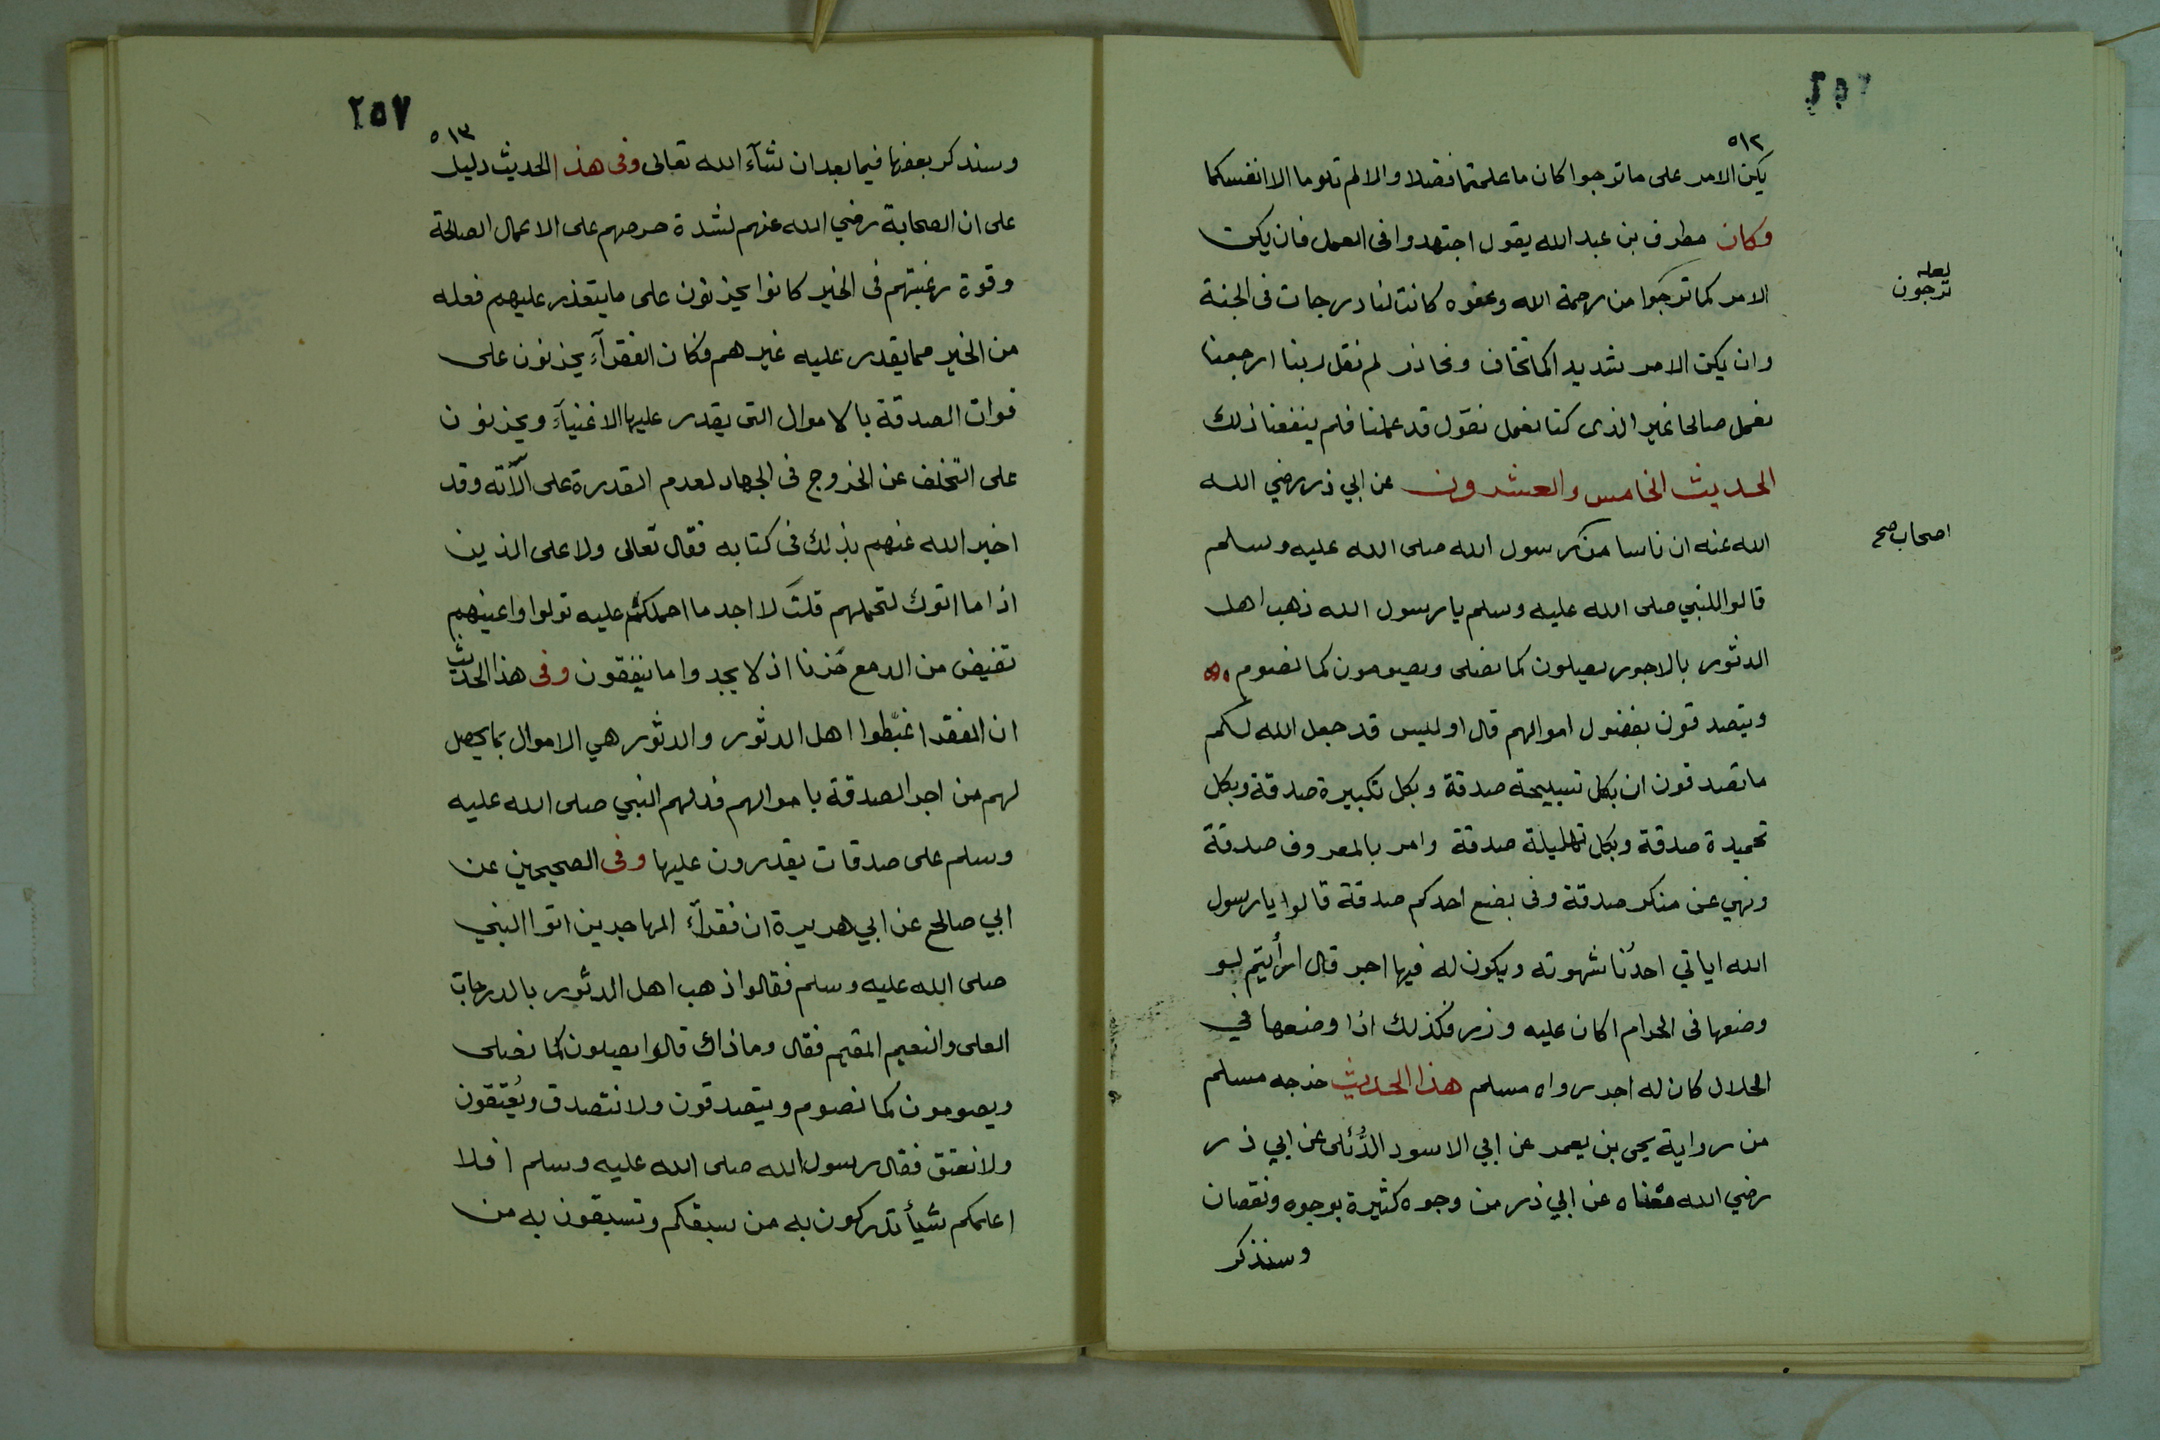 ٥١٢
يكن الامر على ما ترجوا كان ما علمتما فضلا والا لم تلوما الا انفسكما
وكان مطرف بن عبد الله يقول اجتهدوا فى العمل فان يكن
الامر كما ترجوا من رحمة الله وعفوه كانت لنا درجات فى الجنة
لعله
ترجون
وان يكن الامر شديدا كما نخاف ونحاذر لم نقل ربنا ارجعنا
نعمل صالحا غير الذى كنا نعمل نقول قد عملنا فلم ينفعنا ذلك
الحديث الخامس والعشرون عن ابي ذر رضي الله
الله عنه ان ناسا من رسول الله صلى الله عليه وسلم
اصحاب صح
قالوا للنبي صلى الله عليه وسلم يا رسول الله ذهب اهل
الدثور بالاجور يصلون كما نصلى ويصومون كما نصوم
ويتصدقون بفضول اموالهم قال اوليس قد جعل الله لكم
ما تصدقون ان بكل تسبيحة صدقة وبكل تكبيرة صدقة وبكل
تحميدة صدقة وبكل تهليلة صدقة وامر بالمعروف صدقة
ونهي عن منكر صدقة وفى بضع احدكم صدقة قالوا يا رسول
الله اياتي احدُنا شهوته ويكون له فيها اجر قال ارأيتم لو
وضعها فى الحرام اكان عليه وزر فكذلك اذا وضعها في
الحلال كان له اجر رواه مسلم هذا الحديث خرجه مسلم
من رواية يحى بن يعمر عن ابي الاسود الدُّئلى عن ابي ذر
رضي الله معناه عن ابي ذر من وجوه كثيرة بوجوه ونقصان
وسنذكر
٢٥٧
٥١٣
وسنذكر بعضها فيما بعد ان شآء الله تعالى وفى هذا الحديث دليل
على ان الصحابة رضي الله عنهم لشدة حرصهم على الاعمال الصالحة
وقوة رغبتهم فى الخير كانوا يحزنون على ما يتعذر عليهم فعله
من الخير مما يقدر عليه غيرهم فكان الفقرآء يحزنون على
فوات الصدقة بالاموال التى يقدر عليها الاغنيآء ويحزنون
على التخلف عن الخروج فى الجهاد لعدم القدرة على آلاته وقد
اخبر الله عنهم بذلك فى كتابه فقال تعالى ولا على الذين
اذا ما اتوك لتحملهم قلت لا اجد ما احملكم عليه تولوا واعينهم
تفيض من الدمع حَزنا ان لا يجدوا ما ينفقون وفى هذا الحديث
ان الفقرا غبَّطوا اهل الدثور والدثور هي الاموال بما يحصل
لهم من اجر الصدقة باموالهم فدلهم النبي صلى الله عليه
وسلم على صدقات يقدرون عليها وفى الصحيحين عن
ابي صالح عن ابي هريرة ان فقرآء المهاجرين اتوا النبي
صلى الله عليه وسلم فقالوا ذهب اهل الدثور بالدرجات
العلى والنعيم المقيم فقال وما ذاك قالوا يصلون كما نصلى
ويصومون كما نصوم ويتصدقون ولا نتصدق ويُعتقون
ولا نعتق فقال رسول الله صلى الله عليه وسلم افلا
اعلمكم شيأ تدركون به من سبقكم وتسبقون به من